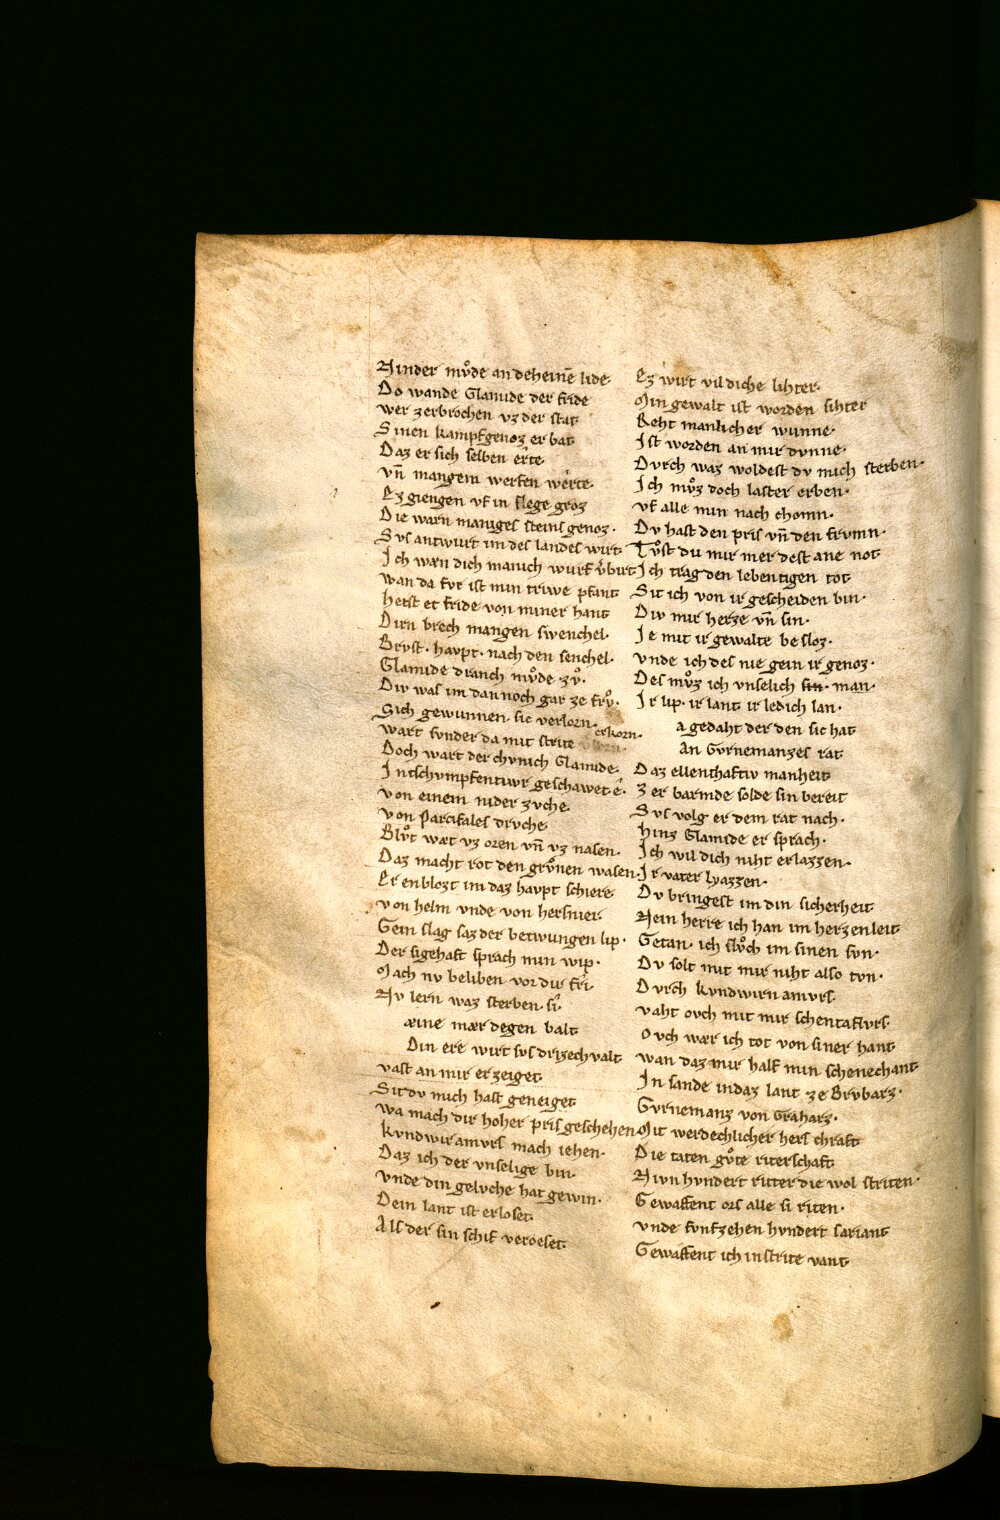 Ninder mvͦde an deheinē lide·
Do wande Glamide der fride
wer zerbrochen vz der stat
Sinen kampfgenoz er bat
Daz er sich selben erte
vn̄ mangem werfen werte·
Ez giengen vf in slege groz
Die warn maniges steins genoz·
Svs antwurt im des landes wirt
Ich wæn dich manich wurf v̓birt
wan da fvr ist min triwe pfant
hetst et fride von miner hant
Dirn brech mangen swenchel·
Brvst· havpt· nach den senchel·
Glamide dranch mvͦde zvͦ·
Div was im dannoch gar ze frvͦ·
Sich gewunnen· sic verlorn·
wart svnder da mit strite erkorn·
Doch wart der chvnich Glamide·
In tschvmpfentiwr geschawet e·
von einem nider zvche
von Parcifales drvche
Blvͦt wæt vz oren vn̄ vz nasen·
Daz macht rot den grvͦnen wasen·
Er enblozt im daz havpt schiere
von helm vnde von hersnier
Gein slag saz der betwungen lip·
Der sigehaft sprach min wip·
Mach nv beliben vor dir fri
Nv lern waz sterben· si
æine mær degen balt
Din ere wirt svs drizechvalt
vast an mir erzeiget·
Sit dv mich hast geneiget
wa mach dir hoher pris geschehen·
kvndwiramvrs mach iehen·
Daz ich der vnselige bin·
vnde din gelvche hat gewin·
Dein lant ist erloset
Als der sin schif veroeset·
Ez wirt vil diche lihter·
Min gewalt ist worden sihter
Reht manlicher wunne·
Ist worden an mir dvnne·
Dvrch waz woldest dv mich sterben·
Ich mvͦz doch laster erben·
vf alle min nach chomn·
Dv hast den pris vn̄ den frvmn·
Tvͦst du mir mer dest ane not
Ich trag den lebentigen tot
Sit ich von ir gescheiden bin·
Div mir herze vn̄ sin·
Ie mit ir gewalte besloz·
vnde ich des nie gein ir genoz·
Des mvͦz ich vnselich sin· man·
Ir lip· ir lant ir ledich lan·
a gedaht der den sic hat
An Gvrnemanzes rat
Daz ellenthaftiv manheit
Zer barmde solde sin bereit
Svs volg er dem rat nach·
hinz Glamide er sprach·
Ich wil dich niht erlazzen·
Ir vater lyazzen·
Dv bringest im din sicherheit
Nein herre ich han im herzenleit
Getan· ich slvͦch im sinen svn·
Dv solt mit mir niht also tvn·
Dvrch kvndwirn amvrs
vaht ovch mit mir schentaflvrs·
Ovch wær ich tot von siner hant
wan daz mir half min schenechant
In sande in daz lant ze Brvbarz·
Gvrnemanz von Graharz·
Mit werdechlicher hers chraft
Die taten gvͦte riterschaft
Nivn hvndert ritter die wol striten·
Gewaffent ors alle si riten·
vnde fvnfzehen hvndert sariant
Gewaffent ich in strite vant